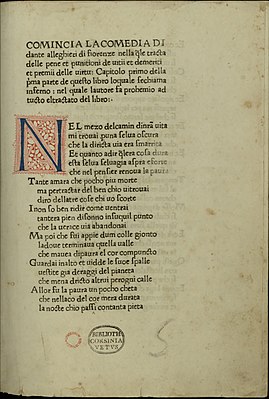 COMINCIA LACOMEDIA DI
dante alleghieri di fiorenze nella q̄le tracta
delle pene et punitioni de uitii et demeriti
et premii delle uirtu: Capitolo primo della
p̃ma parte de questo libro loquale sechiama
inferno : nel quale lautore fa prohemio ad
tucto eltractato del libro:.
N
EL mezo delcamin dinr̄a uita
mi trouai puna selua oscura
che la diricta uia era smarrita
Et quanto adir q̄lera cosa dura
esta selua seluagia aspra eforte
che nel pensier renoua la paura
Tante amara che pocho piu morte
ma pertractar del ben chio uitrouai
diro dellaltre cose chi uo scorte
I non so ben ridir come uentrai
tantera pien disonno insuquil punto
che la uerace uia abandonai
Ma poi che fui appie dum colle gionto
ladoue terminaua quella ualle
che mauea dipaura el cor compuncto
Guardai inalto et uidde le sue spalle
uestite gia deraggi del pianeta
che mena dricto altrui perogni calle
Allor fu la paura un pocho cheta
che nellaco del cor mera durata
la nocte chio passi contanta pieta
BIBLIOTH
CORSINIA
VETVS